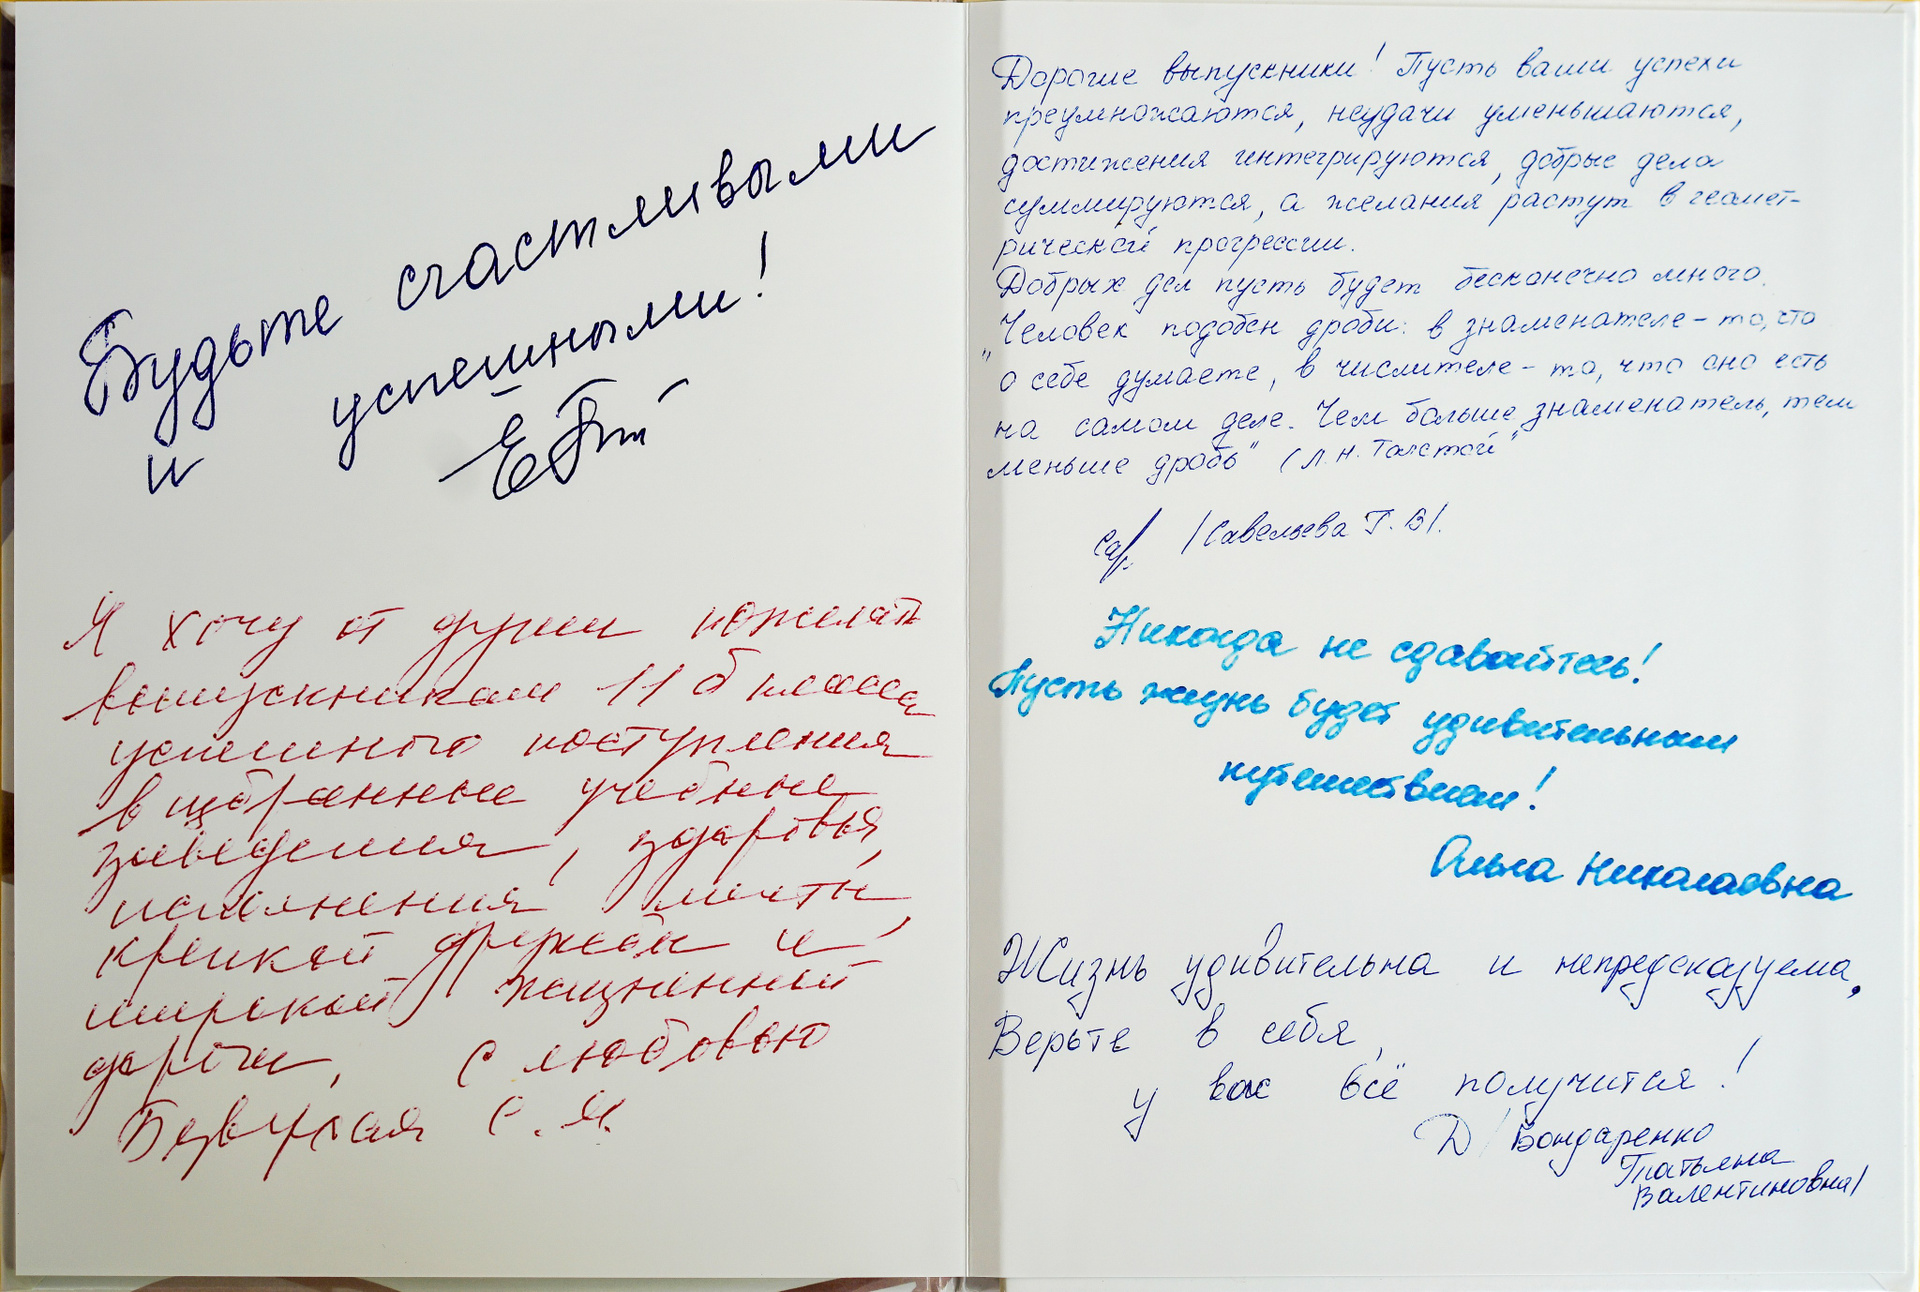 Будьте счастливыми
и успешными!
Я хочу от души пожелать
выпускникам 11 б класса
успешного поступления
в избранные учебные
заведения, здоровья,
исполнения мечты,
крепкой дружбы и
широкой жизненной
дороги, с любовью
С.Я.
Дорогие выпускники! Пусть ваши успехи
преумножаются, неудачи уменьшаются,
достижения интегрируются, добрые дела
суммируются, а желания растут в геомет-
рической прогрессии.
Добрых дел пусть будет бесконечно много.
"Человек подобен дроби: в знаменателе - то, что
о себе думаете, в числителе - то, что оно есть
на самом деле. Чем больше знаменатель, тем
меньше дробь" (Л.Н. Толстой"
/Савельева Г.В/.
Никогда не сдавайтесь!
Пусть жизнь будет удивительным
путешествием!
Ольга Николаевна
Жизнь удивительна и непредсказуема,
Верьте в себя,
у вас всё получится!
/Бондаренко
Татьяна
Валентиновна/